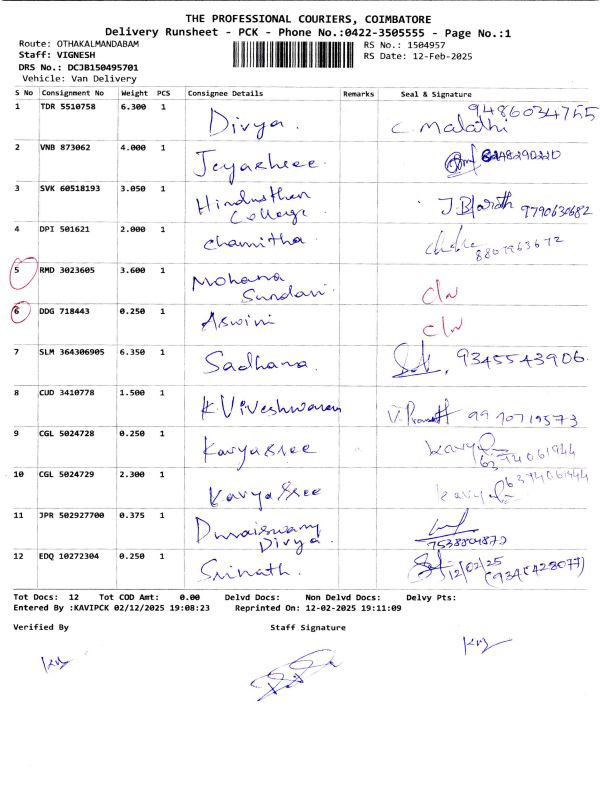 THE PROFESSIONAL COURIERS, COIMBATORE
Delivery Runsheet - PCK - Phone No.:0422-3505555 - Page No.:1
Route: OTHAKALMANDABAM
RS No.: 1504957
Staff: VIGNESH
RS Date: 12-Feb-2025
DRS No.: DCJB150495701
Vehicle: Van Delivery
S No Consignment No Weight PCS Consignee Details Remarks Seal & Signature
1 TDR 5510758 6.300 1 Divya. C. Malathi 9486034755
2 VNB 873062 4.000 1 Jeyashree.
3 SVK 60518193 3.050 1 Hindusthan College J. Bharath 9790630682
4 DPI 501621 2.000 1 Chamitha. 8807963672
5 RMD 3023605 3.600 1 Mohana Sundari
6 DDG 718443 0.250 1 Aswini
7 SLM 364306905 6.350 1 Sadhana. 9345543906.
8 CUD 3410778 1.500 1 K. Viveshwaran 9990719573
9 CGL 5024728 0.250 1 Kavyasree 6374061944
10 CGL 5024729 2.300 1 Kavyasree 6374061944
11 JPR 502927700 0.375 1 Duraiswamy Divya.
12 EDQ 10272304 0.250 1 Srinath. 12/02/25
Tot Docs: 12 Tot COD Amt: 0.00 Delvd Docs: Non Delvd Docs: Delvy Pts:
Entered By :KAVIPCK 02/12/2025 19:08:23 Reprinted On: 12-02-2025 19:11:09
Verified By Staff Signature